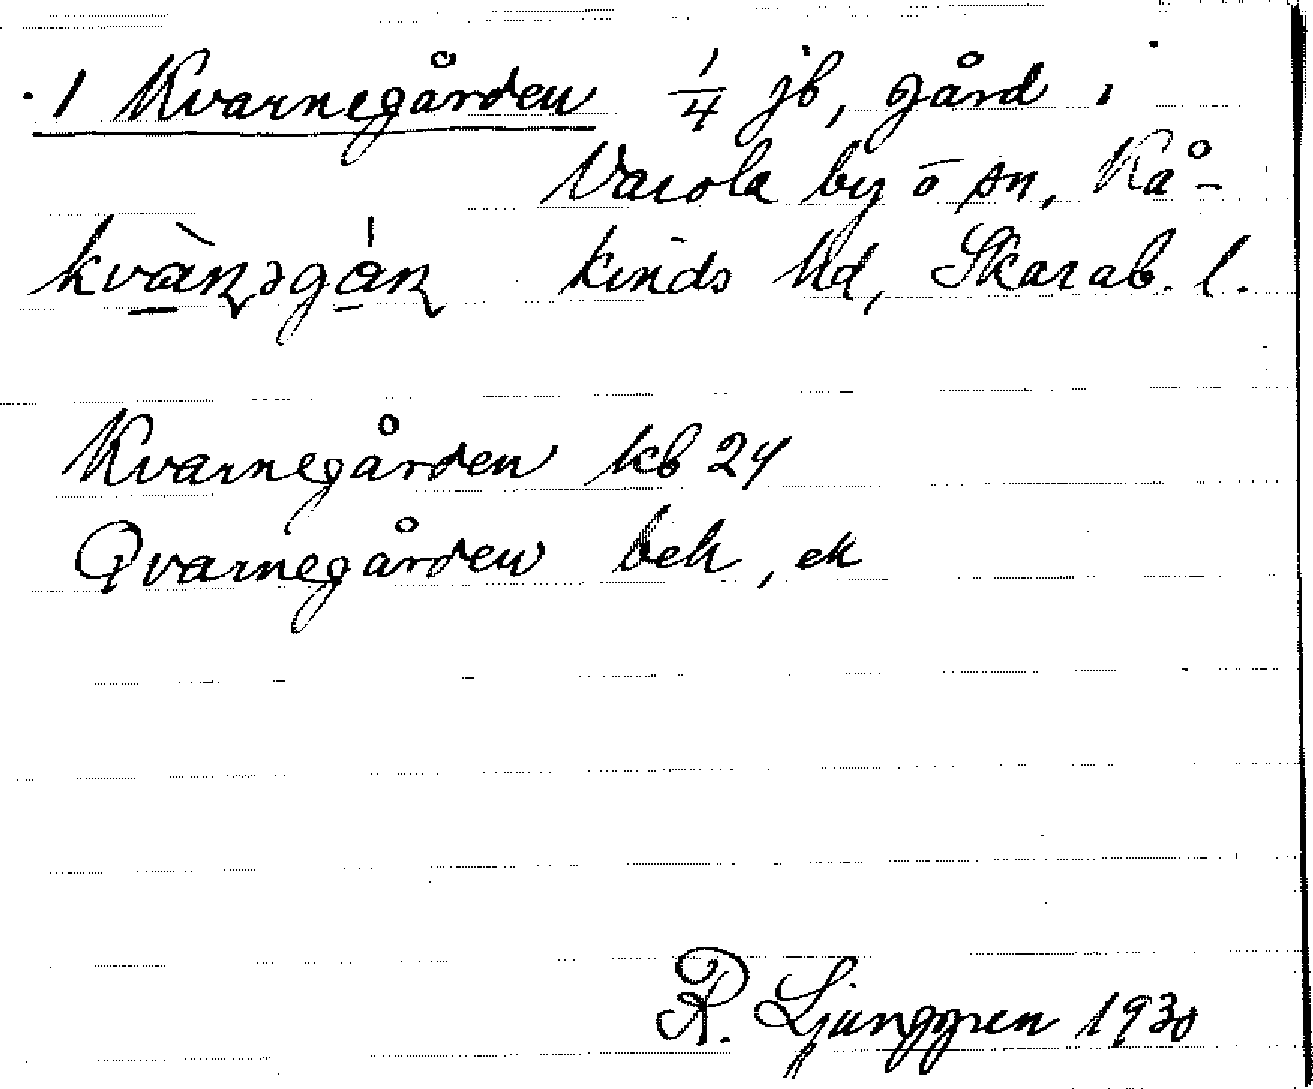 1 Kvarnegården 1/4 jb, gård i
Varola by o sn, Kå-
kinds hd, Skarab. l.
kvàṇəgáṇ
Kvarnegården kb 24
Qvarnegården bek, ek
R. Ljunggren 1930